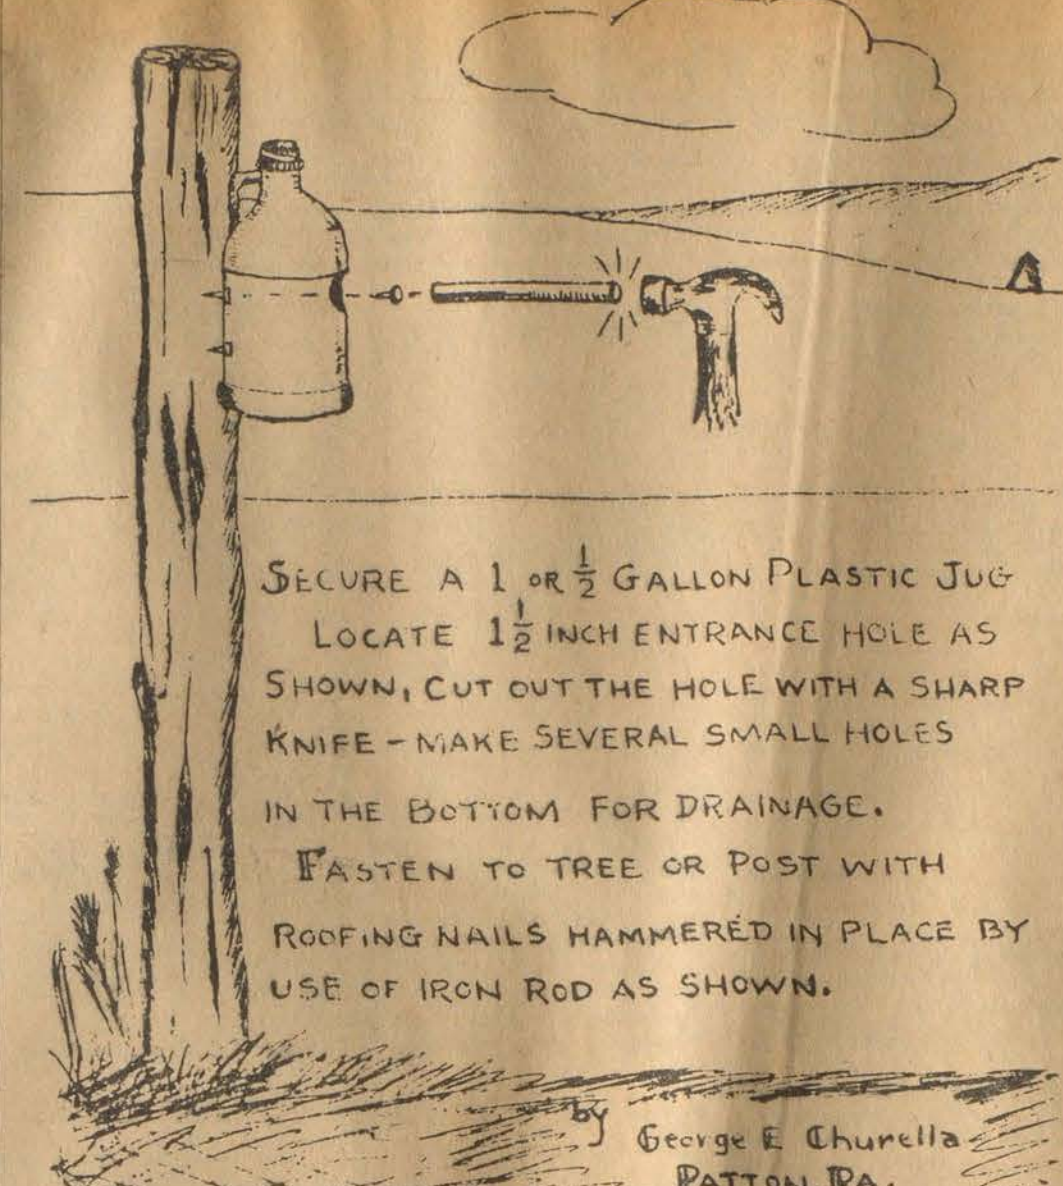 SECURE A 1 OR 1/2 GALLON PLASTIC JUG
LOCATE 1 1/2 INCH ENTRANCE HOLE AS
SHOWN, CUT OUT THE HOLE WITH A SHARP
KNIFE - MAKE SEVERAL SMALL HOLES
IN THE BOTTOM FOR DRAINAGE.
FASTEN TO TREE OR POST WITH
ROOFING NAILS HAMMERED IN PLACE BY
USE OF IRON ROD AS SHOWN.
by
George E Churella
PATTON PA.